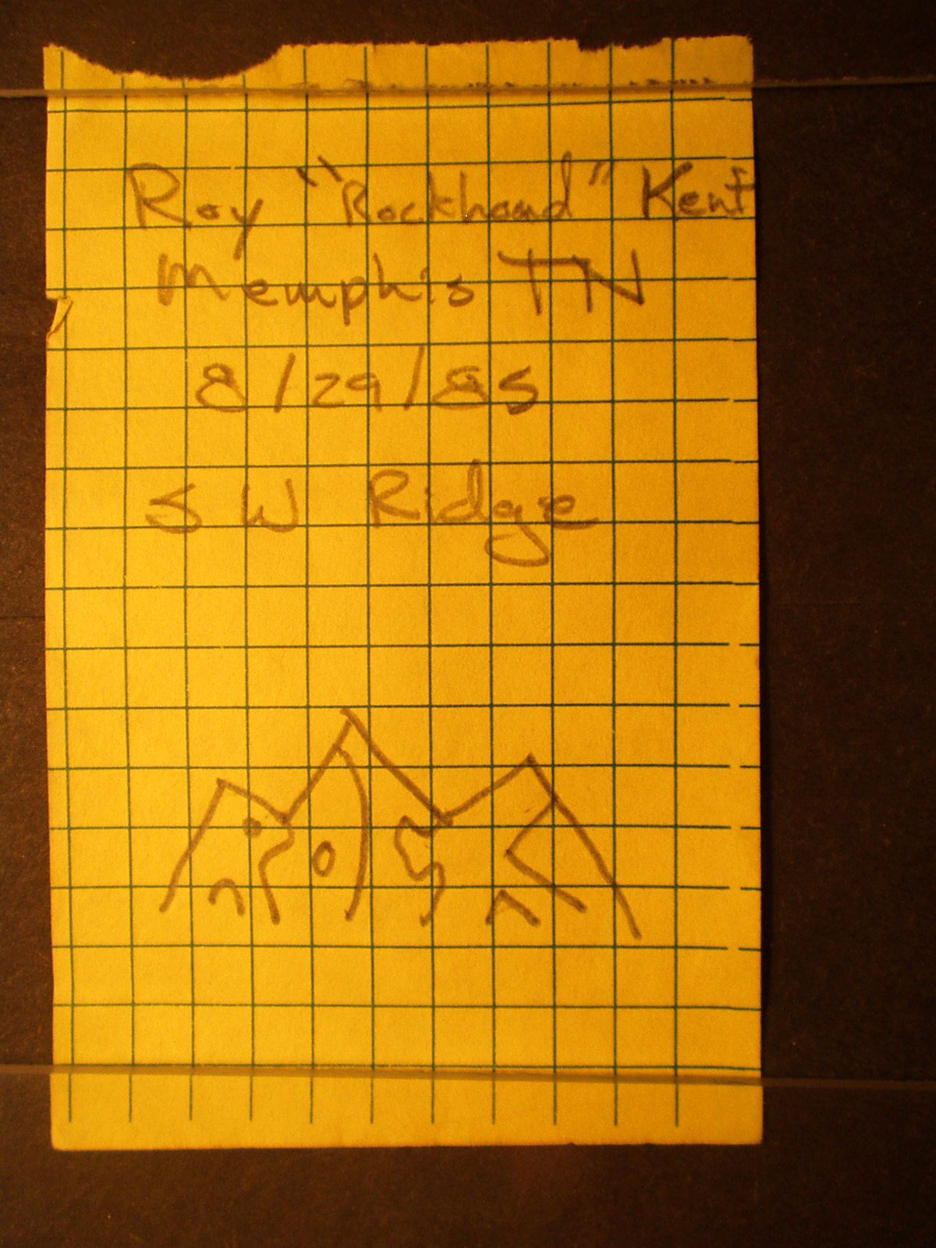 Roy "Rockhead" Kent
Memphis TN
8/29/85
SW Ridge